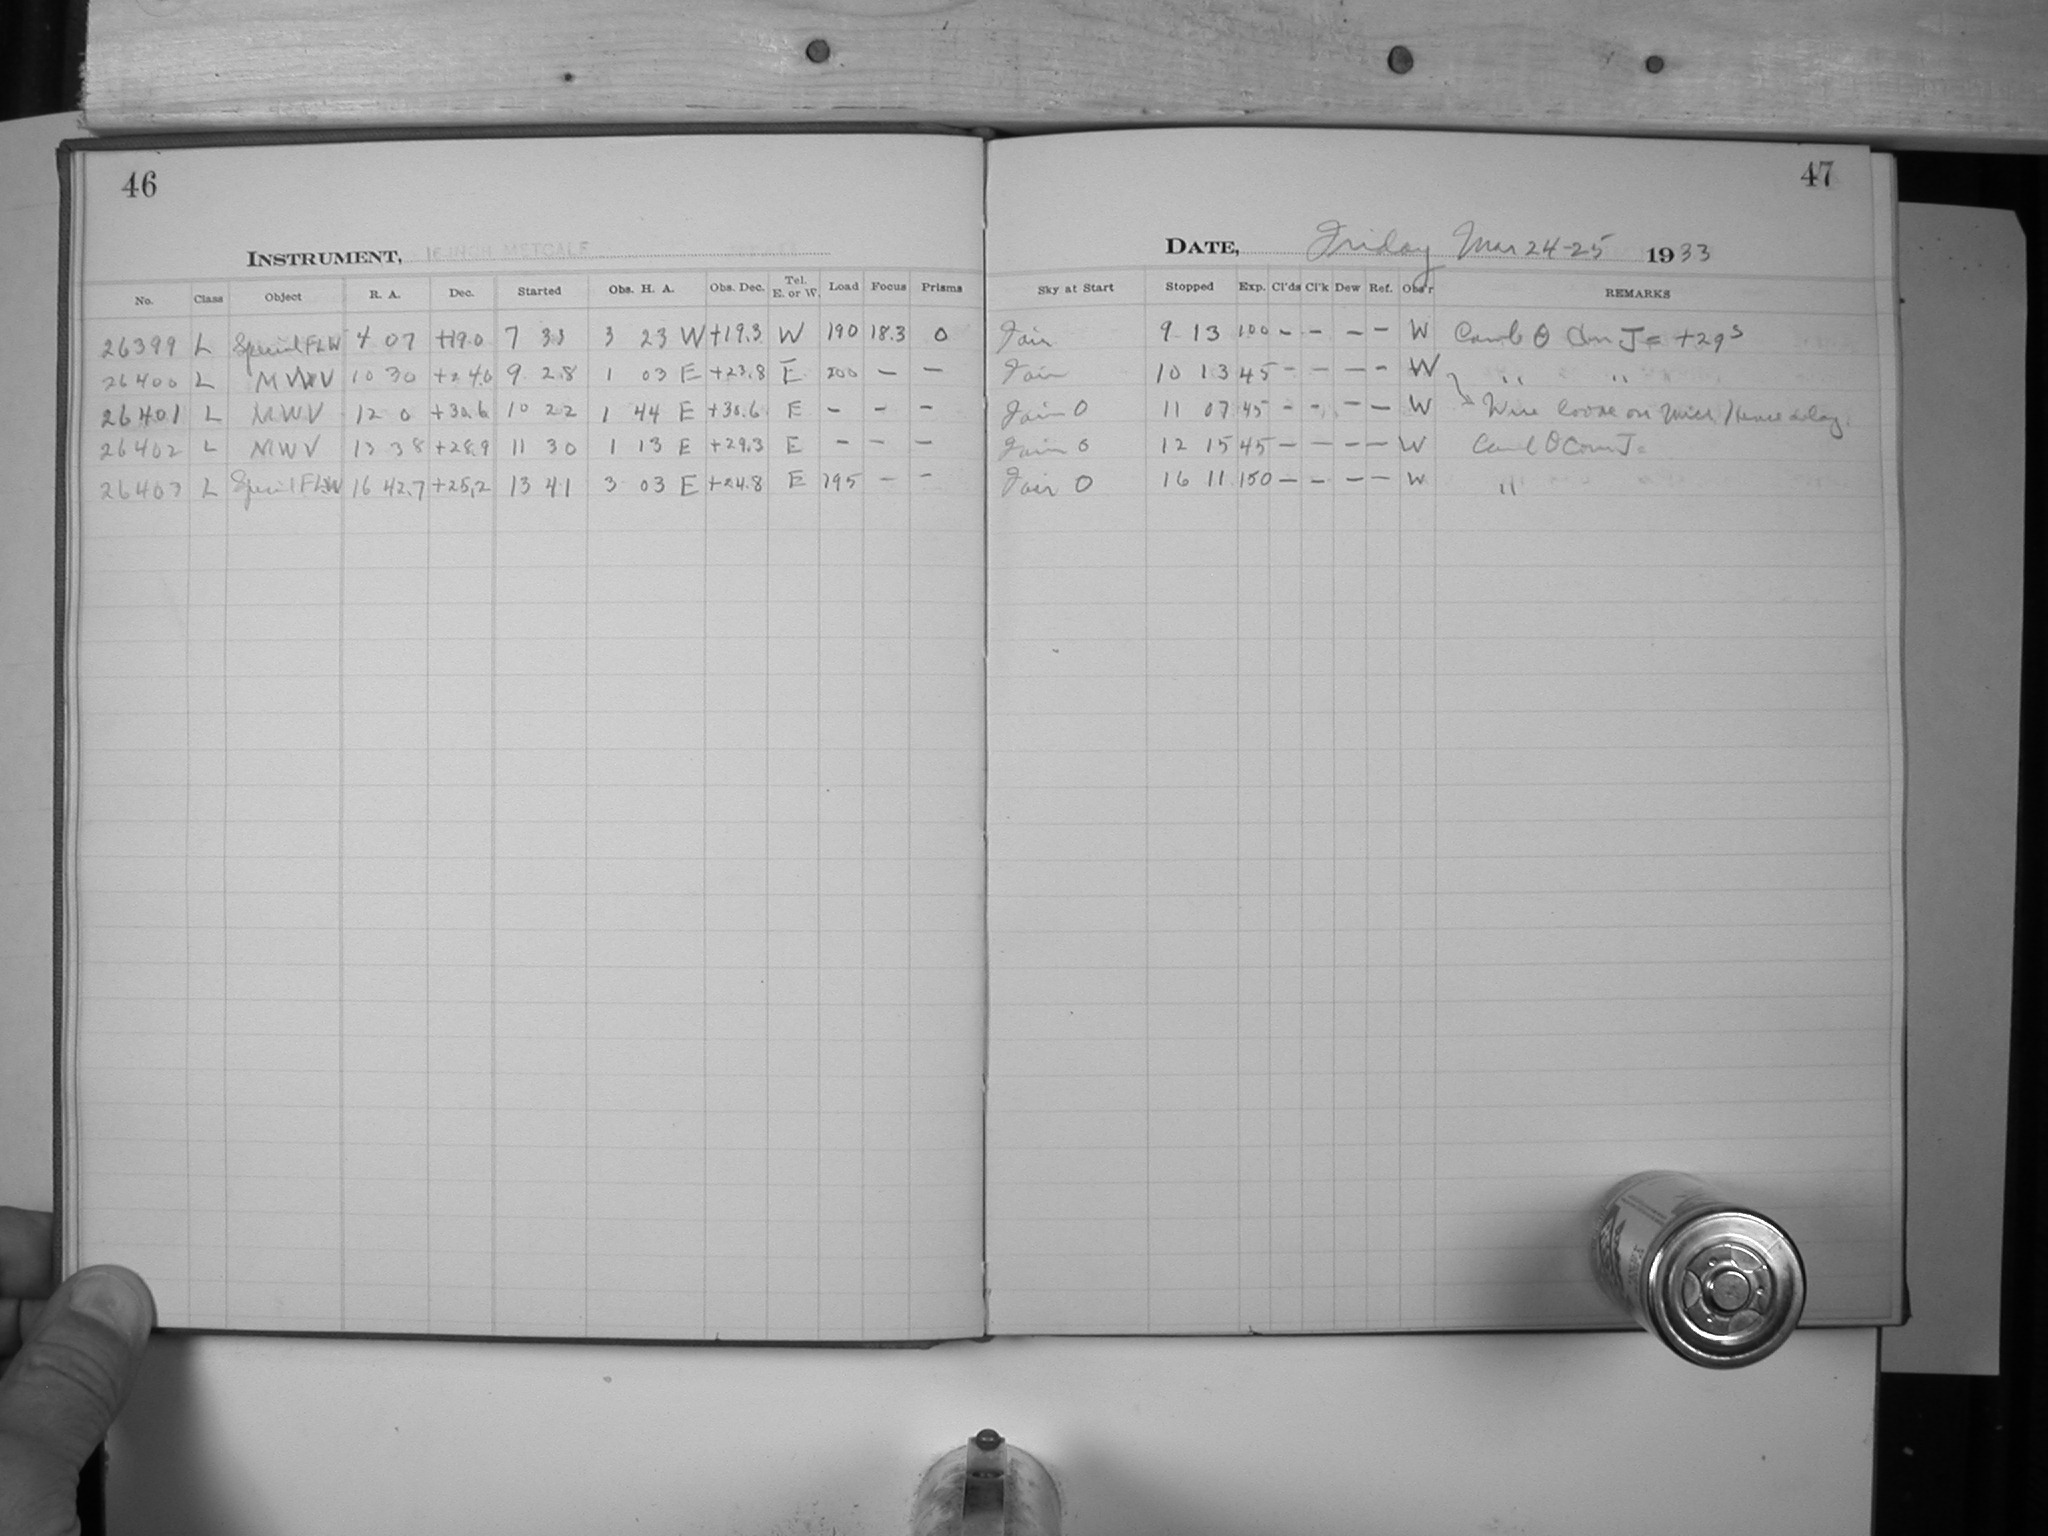 46
INSTRUMENT, 16 INCH METCALF
No. Class Object R. A. Dec. Started Obs. H. A. Obs. Dec. Tel. E. or W. Load Focus Prisms
26399 L Special FLW 4 07 +19.0 7 33 3 23 W +19.3 W 190 18.3 0
26400 L MWV 10 30 +24.0 9 28 1 03 E +23.8 E 200 — —
26401 L MWV 12 0 +30.6 10 22 1 44 E +30.6 E — — —
26402 L MWV 13 38 +28.9 11 30 1 13 E +29.3 E — — —
26403 L Special FLW 16 42.7 +25.2 13 41 3 03 E +24.8 E 195 — —
47
DATE, Friday Mar 24-25 1933
Sky at Start Stopped Exp. Cl'ds Cl'k Dew Ref. Obs'r REMARKS
Fair 9 13 100 — — — — W = +29s
Fair 10 13 45 — — — — W " "
Fair 0 11 07 45 — — — — W Wire loose on Hence delay.
Fair 0 12 15 45 — — — — W
Fair 0 16 11 150 — — — — W "